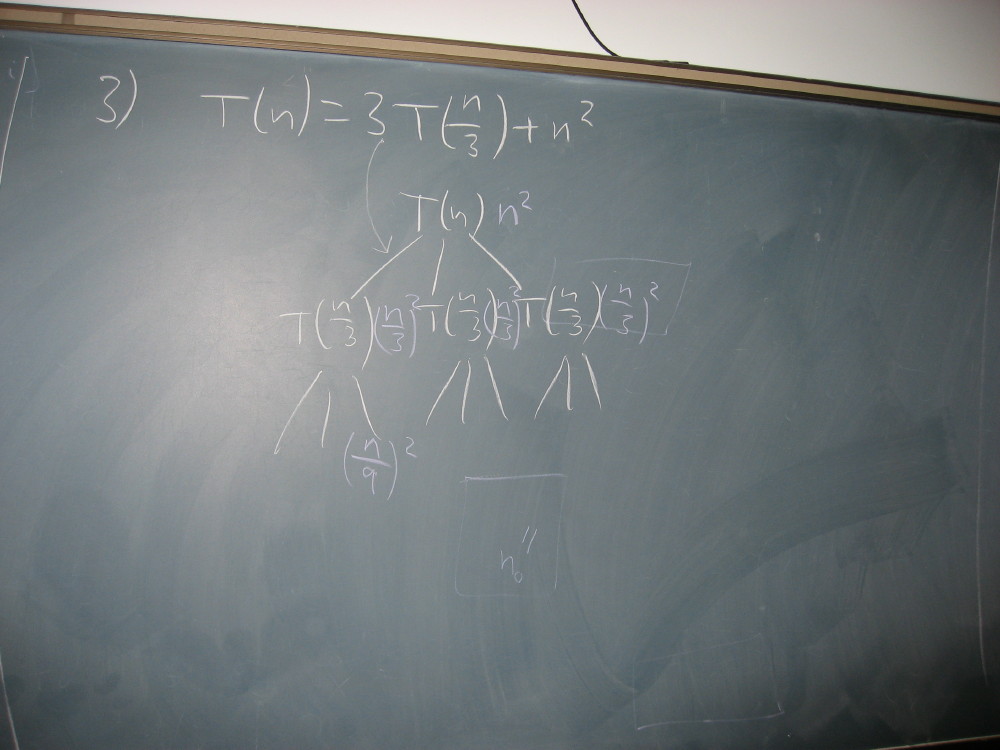 3) T(n) = 3 T(n/3) + n²
T(n) n²
T(n/3) (n/3)² T(n/3) (n/3)² T(n/3) (n/3)²
(n/9)²
n₀"